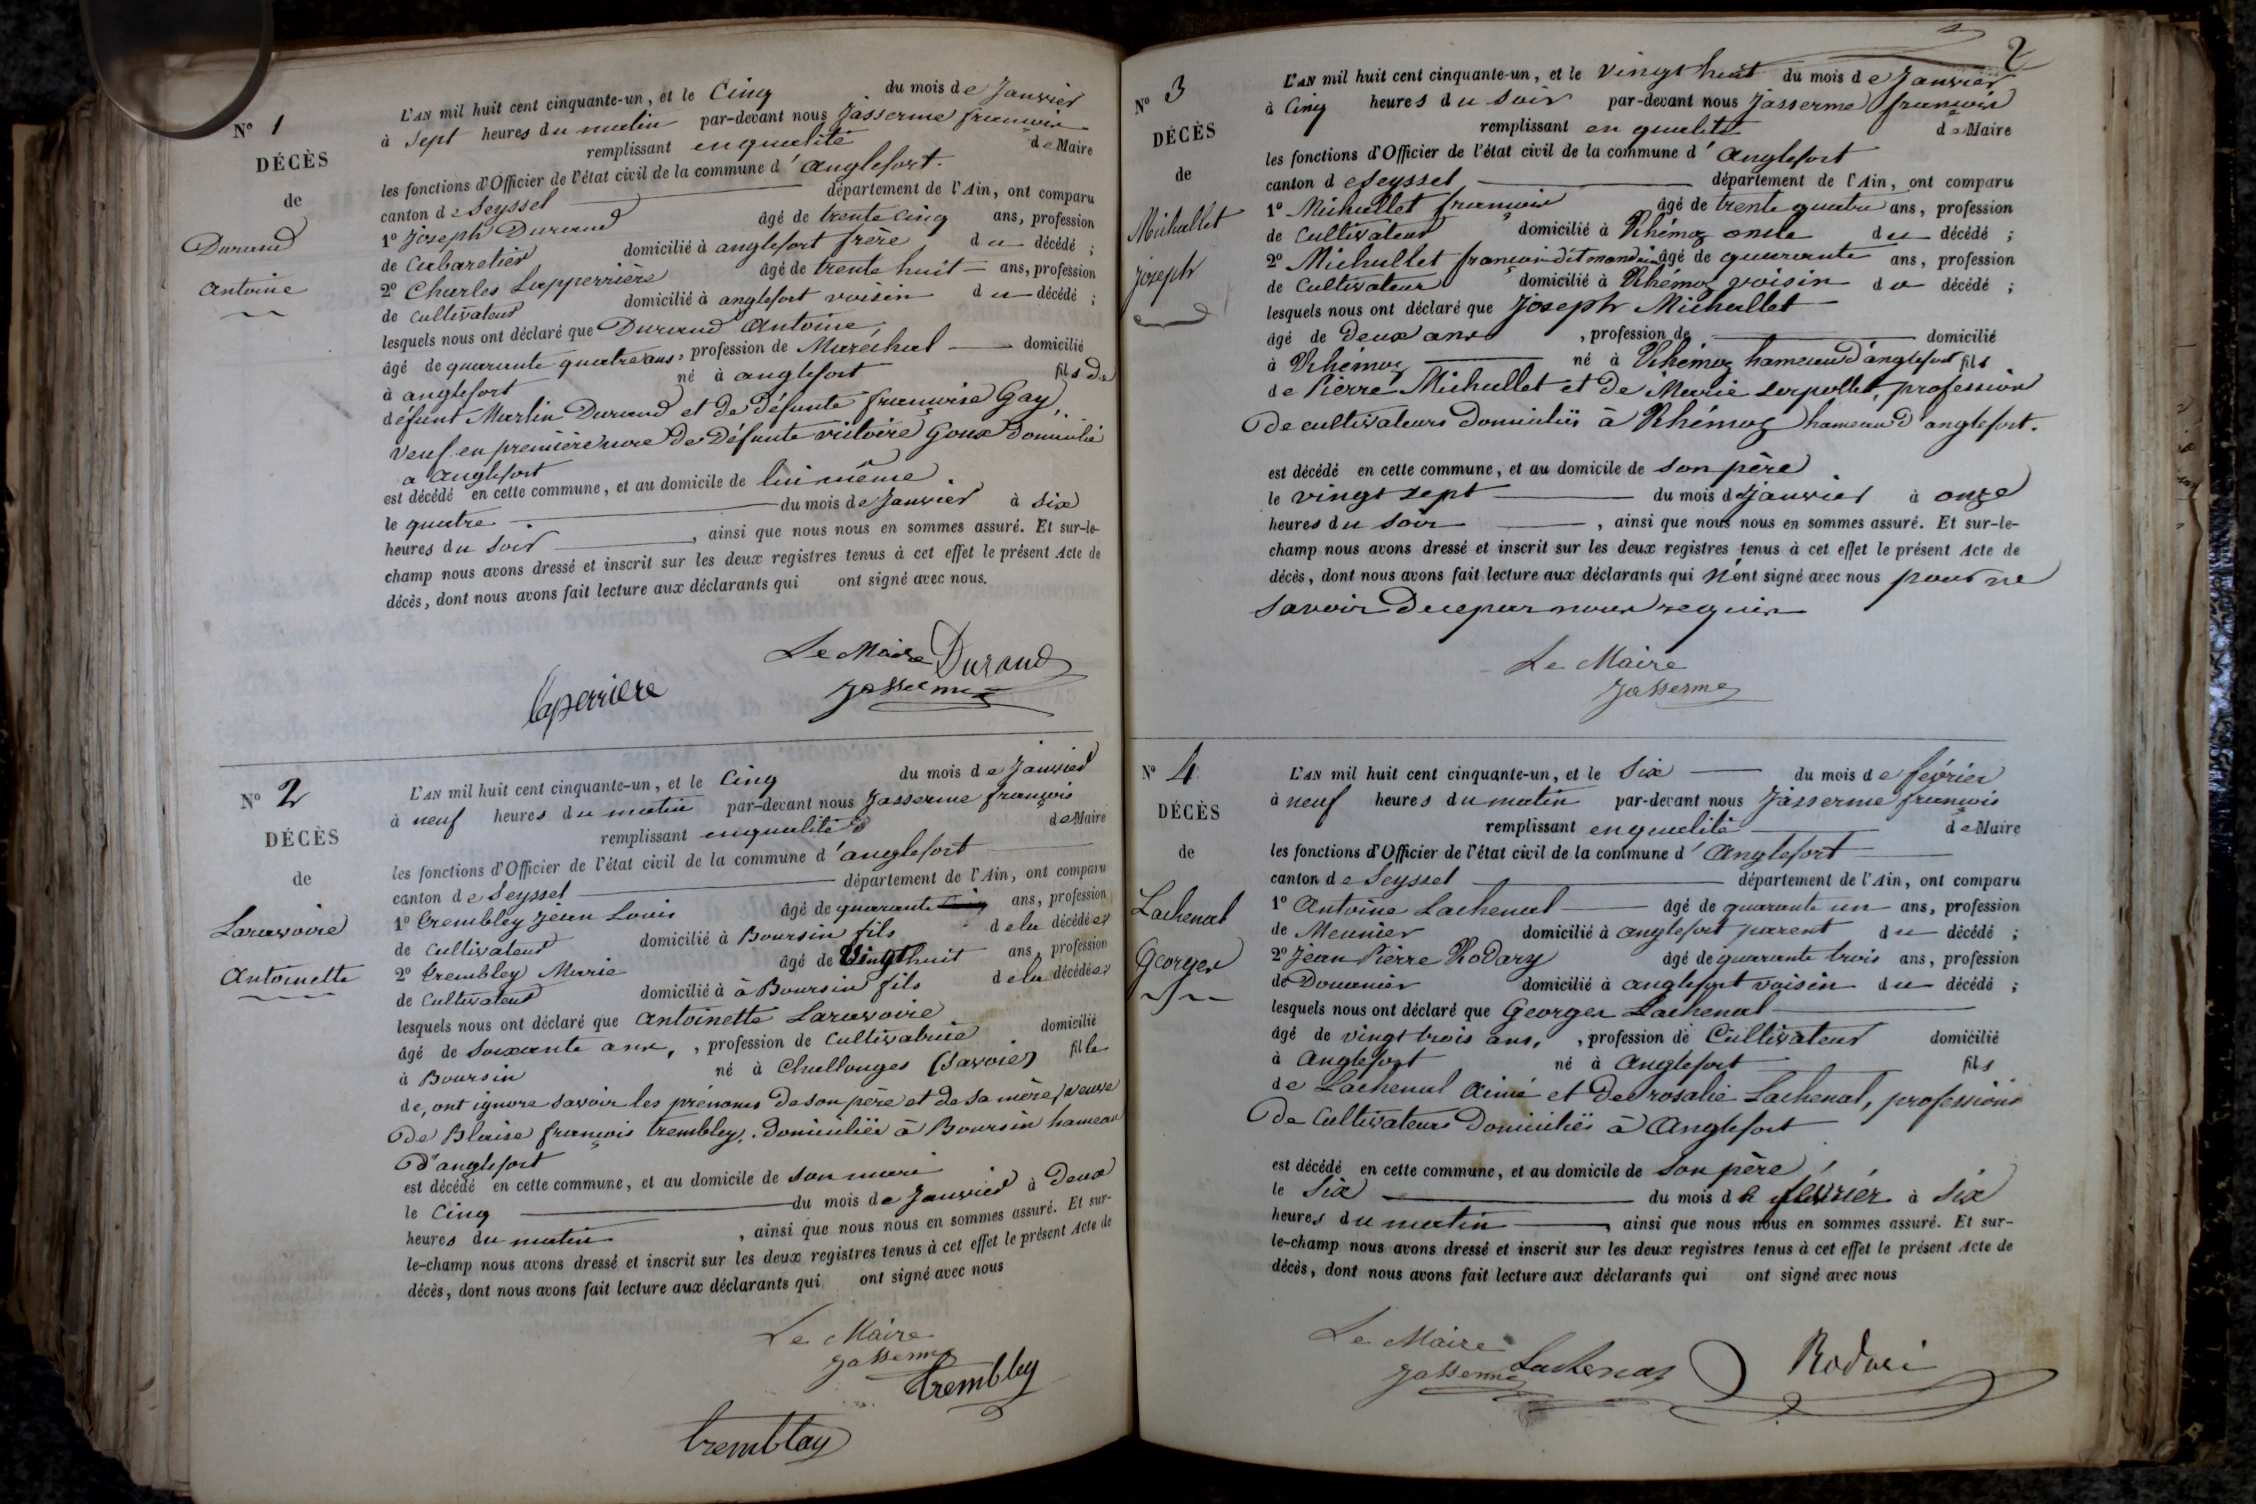 N° 1
DÉCÈS
de
Durand
Antoine
L'AN mil huit cent cinquante-un, et le Cinq du mois de Janvier
à Sept heures du matin par-devant nous Jasserme françois
remplissant en qualité de Maire
les fonctions d'Officier de l'état civil de la commune d'anglefort.
canton de Seyssel département de l'Ain, ont comparu
1° Joseph Durand âgé de trente cinq ans, profession
de Cabaretier domicilié à anglefort frère du décédé ;
2° Charles Lapperrière âgé de trente huit ans, profession
de Cultivateur domicilié à anglefort voisin du décédé ;
lesquels nous ont déclaré que Durand Antoine
âgé de quarante quatre ans, profession de Maréchal domicilié
à anglefort né à anglefort fils de
défunt Martin Durand et de défunte françoise Gay,
veuf en première noce de Défunte victoire Goux domicilié
a anglefort
est décédé en cette commune, et au domicile de lui même
le quatre du mois de Janvier à Six
heures du Soir, ainsi que nous nous en sommes assuré. Et sur-le-
champ nous avons dressé et inscrit sur les deux registres tenus à cet effet le présent Acte de
décès, dont nous avons fait lecture aux déclarants qui ont signé avec nous.
Le Maire Durand
laperriere Jasserme
N° 2
DÉCÈS
de
Laravoire
Antoinette
L'AN mil huit cent cinquante-un, et le Cinq du mois de Janvier
à neuf heures du matin par-devant nous Jasserme françois
remplissant en qualité de Maire
les fonctions d'Officier de l'état civil de la commune d'anglefort
canton de Seyssel département de l'Ain, ont comparu
1° Trembley Jean Louis âgé de quarante ans, profession
de Cultivateur domicilié à Boursin fils de la décédée,
2° Trembley Marie âgé de Vingt huit ans, profession
de Cultivateur domicilié à à Boursin fils de la décédée,
lesquels nous ont déclaré que Antoinette Laravoire
âgé de soixante ans, , profession de Cultivatrice domicilié
à Boursin né à Challonges (Savoie) fille
de, ont ignoré savoir les prénoms de son père et de sa mère, veuve
De Blaise françois trembley, domiciliée à Boursin hameau
D'anglefort
est décédé en cette commune, et au domicile de son mari
le Cinq du mois de Janvier à Deux
heures du matin, ainsi que nous nous en sommes assuré. Et sur-
le-champ nous avons dressé et inscrit sur les deux registres tenus à cet effet le présent Acte de
décès, dont nous avons fait lecture aux déclarants qui ont signé avec nous
Le Maire
Jasserme
trembley
tremblay
2
N° 3
DÉCÈS
de
Michallet
joseph
L'AN mil huit cent cinquante-un, et le vingt huit du mois de Janvier
à Cinq heures du soir par-devant nous Jasserme françois
remplissant en qualité de Maire
les fonctions d'Officier de l'état civil de la commune d'Anglefort
canton de Seyssel département de l'Ain, ont comparu
1° Michallet françois âgé de trente quatre ans, profession
de Cultivateur domicilié à Rhémoz oncle du décédé ;
2° Michallet françois dit âgé de quarante ans, profession
de Cultivateur domicilié à Rhémoz voisin du décédé ;
lesquels nous ont déclaré que Joseph Michallet
âgé de Deux ans, profession de domicilié
à Rhémoz né à Rhémoz hameau d'anglefort fils
de Pierre Michallet et de Marie serpollet, profession
De cultivateurs domiciliés à Rhémoz hameau D'anglefort.
est décédé en cette commune, et au domicile de son père
le vingt sept du mois de Janvier à onze
heures du soir, ainsi que nous nous en sommes assuré. Et sur-le-
champ nous avons dressé et inscrit sur les deux registres tenus à cet effet le présent Acte de
décès, dont nous avons fait lecture aux déclarants qui n'ont signé avec nous pour ne
savoir De ce par nous requis
Le Maire
Jasserme
N° 4
DÉCÈS
de
Lachenal
Georges
L'AN mil huit cent cinquante-un, et le Six du mois de février
à neuf heures du matin par-devant nous Jasserme françois
remplissant en qualité de Maire
les fonctions d'Officier de l'état civil de la commune d'Anglefort
canton de Seyssel département de l'Ain, ont comparu
1° Antoine Lachenal âgé de quarante un ans, profession
de Meunier domicilié à anglefort parent du décédé ;
2° Jean Pierre Rodary âgé de quarante trois ans, profession
de Douanier domicilié à anglefort voisin du décédé ;
lesquels nous ont déclaré que Georges Lachenal
âgé de vingt trois ans, , profession de Cultivateur domicilié
à Anglefort né à Anglefort fils
de Lachenal Aimé et de rosalie Lachenal, professions
De Cultivateurs Domiciliés à Anglefort
est décédé en cette commune, et au domicile de son père
le Six du mois de février à Six
heures du matin, ainsi que nous nous en sommes assuré. Et sur-
le-champ nous avons dressé et inscrit sur les deux registres tenus à cet effet le présent Acte de
décès, dont nous avons fait lecture aux déclarants qui ont signé avec nous
Le Maire
Jasserme Lachenal Rodari